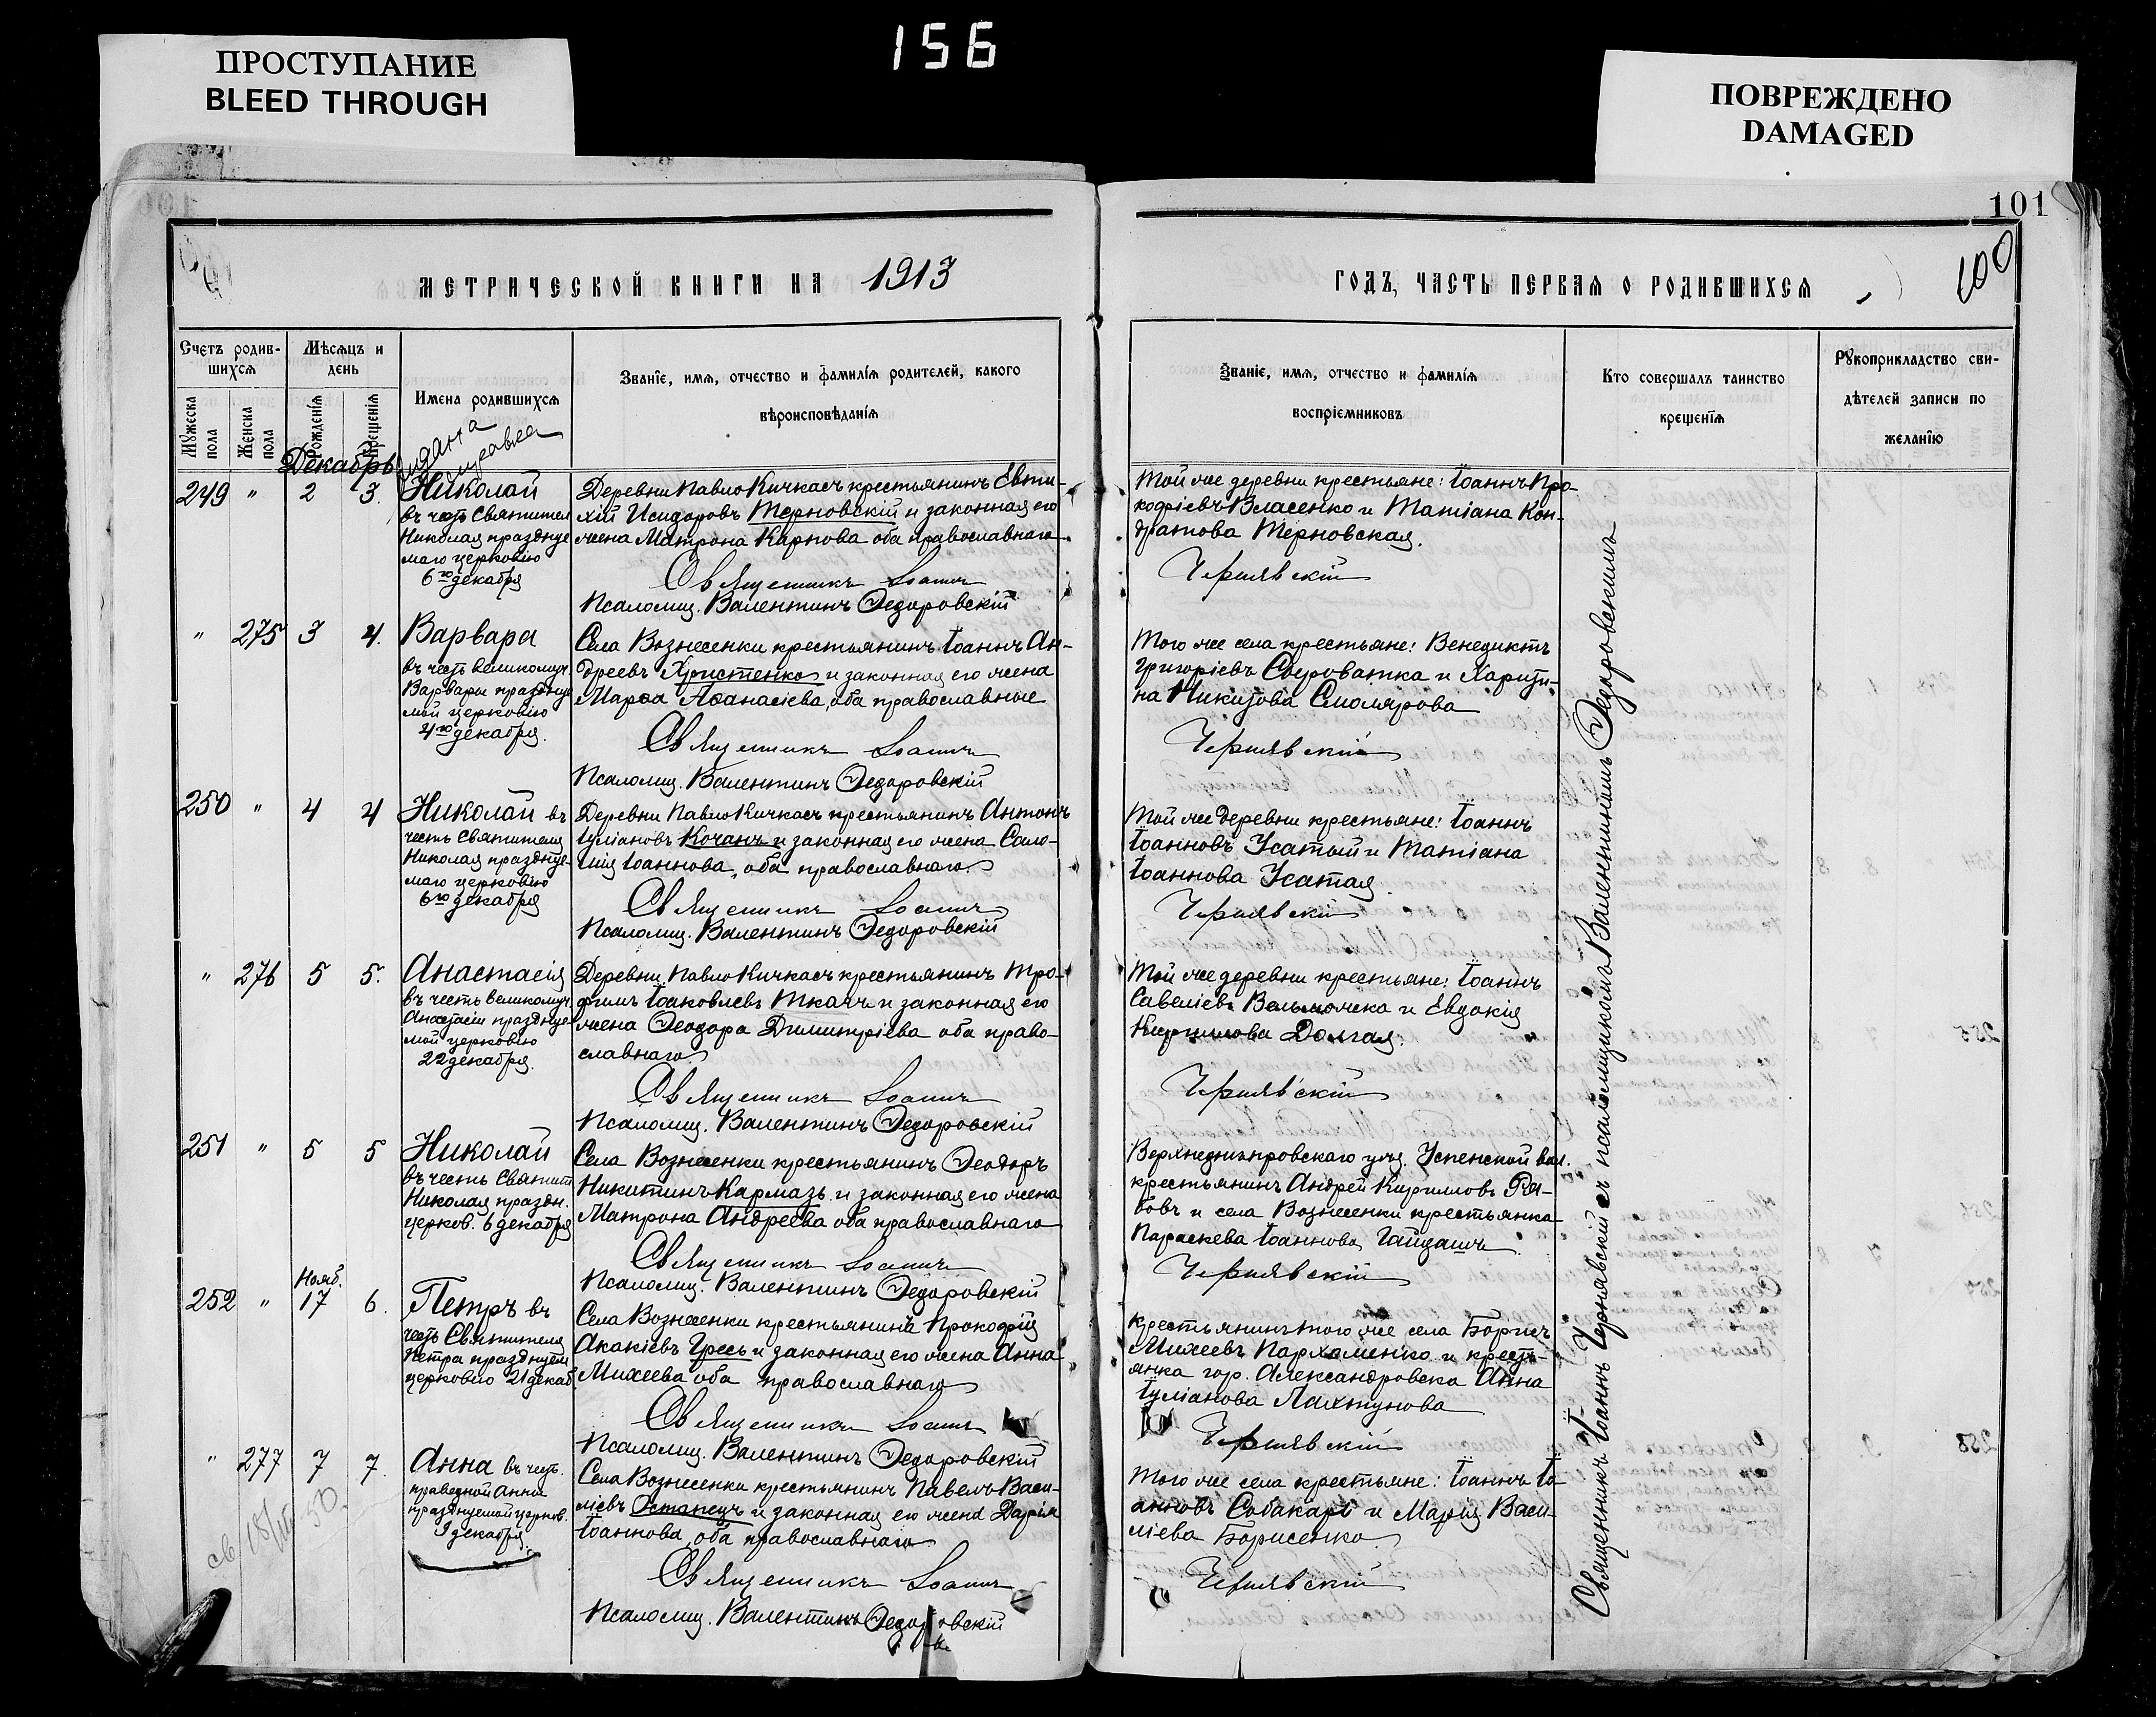 156
ПРОСТУПАНИЕ
BLEED THROUGH
ПОВРЕЖДЕНО
DAMAGED
101
100
МЕТРИЧЕСКОЙ КНИГИ НА 1913
ГОДЪ, ЧАСТЬ ПЕРВАЯ О РОДИВШИХСЯ
Счетъ родив-
шихся
Мѣсяцъ и
день
Мужеска пола
Женска пола
Рожденія
Крещенія
Имена родившихся
Званіе, имя, отчество и фамилія родителей, какого
вѣроисповѣданія
Званіе, имя, отчество и фамилія
воспріемниковъ
Кто совершалъ таинство
крещенія
Рукоприкладство сви-
дѣтелей записи по
желанію
Декабрь
249 " 2 3. Николай
въ честь Святител
Николая праздну-
маго церковію
6го декабря
Деревни Павло Кичкасъ крестьянинъ Евти-
хій Исидоровъ Терновскій и законная его
жена Матрона Карпова оба православнаго
Священникъ Іоаннъ
Псаломщ. Валентинъ Ѳедоровскій
Той же деревни крестьяне: Іоаннъ Про-
кофіевъ Власенко и Татіана Кон-
дратова Терновская.
Чернявскій
" 275 3 4. Варвара
въ честь великомуч.
Варвары праздну
мой церковію
4го декабря.
Села Вознесенки крестьянинъ Іоаннъ Ан-
дреевъ Христенко и законная его жена
Марѳа Аѳанасіева, оба православные
Священникъ Іоаннъ
Псаломщ. Валентинъ Ѳедоровскій
Того же села крестьяне: Венедиктъ
Григоріевъ Сыроватка и Харити-
на Никитова Смолярова
Чернявскій
250 " 4 4 Николай въ
честь Святителя
Николая праздну-
маго церковію
6го декабря
Деревни Павло Кичкасъ крестьянинъ Антонъ
Іуліановъ Кочанъ и законная его жена Сало-
мія Іоаннова, оба православнаго.
Священникъ Іоаннъ
Псаломщ. Валентинъ Ѳедоровскій
Той же деревни крестьяне: Іоаннъ
Іоанновъ Усатый и Татіана
Іоаннова Усатая.
Чернявскій
" 276 5 5. Анастасія
въ честь великомуч.
Анастасіи праздну-
мой церковію
22 декабря.
Деревни Павло Кичкасъ крестьянинъ Тро-
фимъ Іоаковлевъ Ткачъ и законная его
жена Ѳеодора Димитріева оба право-
славнаго
Священникъ Іоаннъ
Псаломщ. Валентинъ Ѳедоровскій
Той же деревни крестьяне: Іоаннъ
Савеліевъ Вельможка и Евдокія
Кириллова Долгая.
Чернявскій
251 " 5 5 Николай
въ честь Святит
Николая праздн.
церков. 6 декабря
Села Вознесенки крестьянинъ Ѳеодоръ
Никитинъ Кармазь и законная его жена
Матрона Андреева оба православнаго
Священникъ Іоаннъ
Псаломщ. Валентинъ Ѳедоровскій
Верхнеднѣпровскаго уѣзд. Успенской вол.
крестьянинъ Андрей Кирилловъ Ря-
бовъ и села Вознесенки крестьянка
Параскева Іоаннова Гайдашъ
Чернявскій
252 " Нояб. 17 6. Петръ въ
честь Святителя
Петра празднуем
церковію 21 декаб.
Села Вознесенки крестьянина Прокофія
Акакіевъ Гресь и законная его жена Анна
Михеева оба православнаго
Священникъ Іоаннъ
Псаломщ. Валентинъ Ѳедоровскій
крестьянинъ того же села Борисъ
Михеевъ Пархоменко и кресть-
янка гор. Александровска Анна
Іуліанова Лахтунова
Чернявскій
" 277 7 7. Анна въ честь
праведной Анны
празднуемой церков.
9 декабря
Села Вознесенки крестьянинъ Павелъ Васи-
ліевъ Остапецъ и законная его жена Дарія
Іоаннова, оба православнаго
Священникъ Іоаннъ
Псаломщ. Валентинъ Ѳедоровскій
Того же села крестьяне: Іоаннъ Іо-
анновъ Собакарь и Марія Васи-
ліева Борисенко.
Чернявскій
Священникъ Іоаннъ Чернявскій съ псаломщикомъ Валентиномъ Ѳедоровскимъ